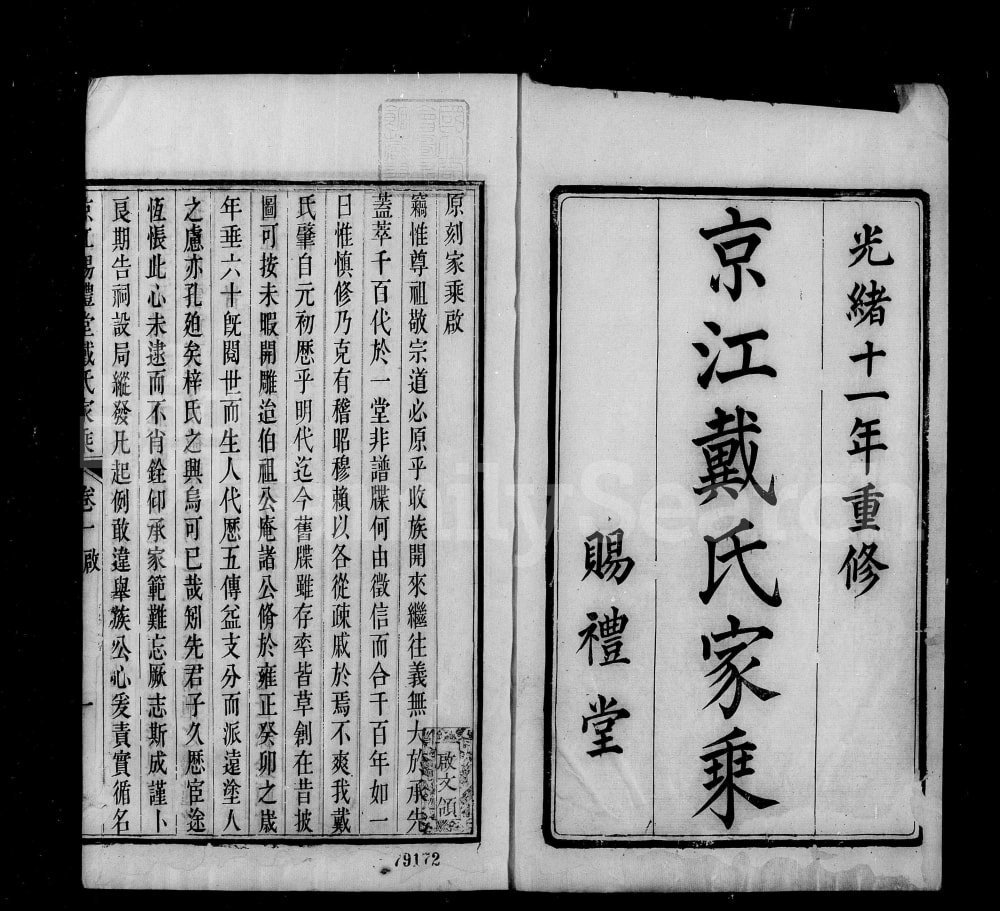 光緒十一年重修
京江戴氏家乘
賜禮堂
原刻家乘啟
竊惟尊祖敬宗道必原乎收族開來繼往義無大於承先
蓋萃千百代於一堂非譜牒何由徵信而合千百年如一
日惟慎修乃克有稽昭穆賴以各從疎戚於焉不爽我戴
氏肇自元初歷乎明代迄今舊牒雖存率皆草創在昔披
圖可按未暇開雕迨伯祖公庵諸公脩於雍正癸卯之歲
年垂六十旣閱世而生人代歷五傳益支分而派遠塗人
之慮亦孔廹矣梓氏之興烏可已哉矧先君子久歷宦途
恆悵此心未逮而不肖銓仰承家範難忘厥志斯成謹卜
良期告祠設局縱發凡起例敢違舉族公心爰責實循名
京江賜禮堂戴氏家乘 卷一 啟 一
啟文領
79172
FamilySearch